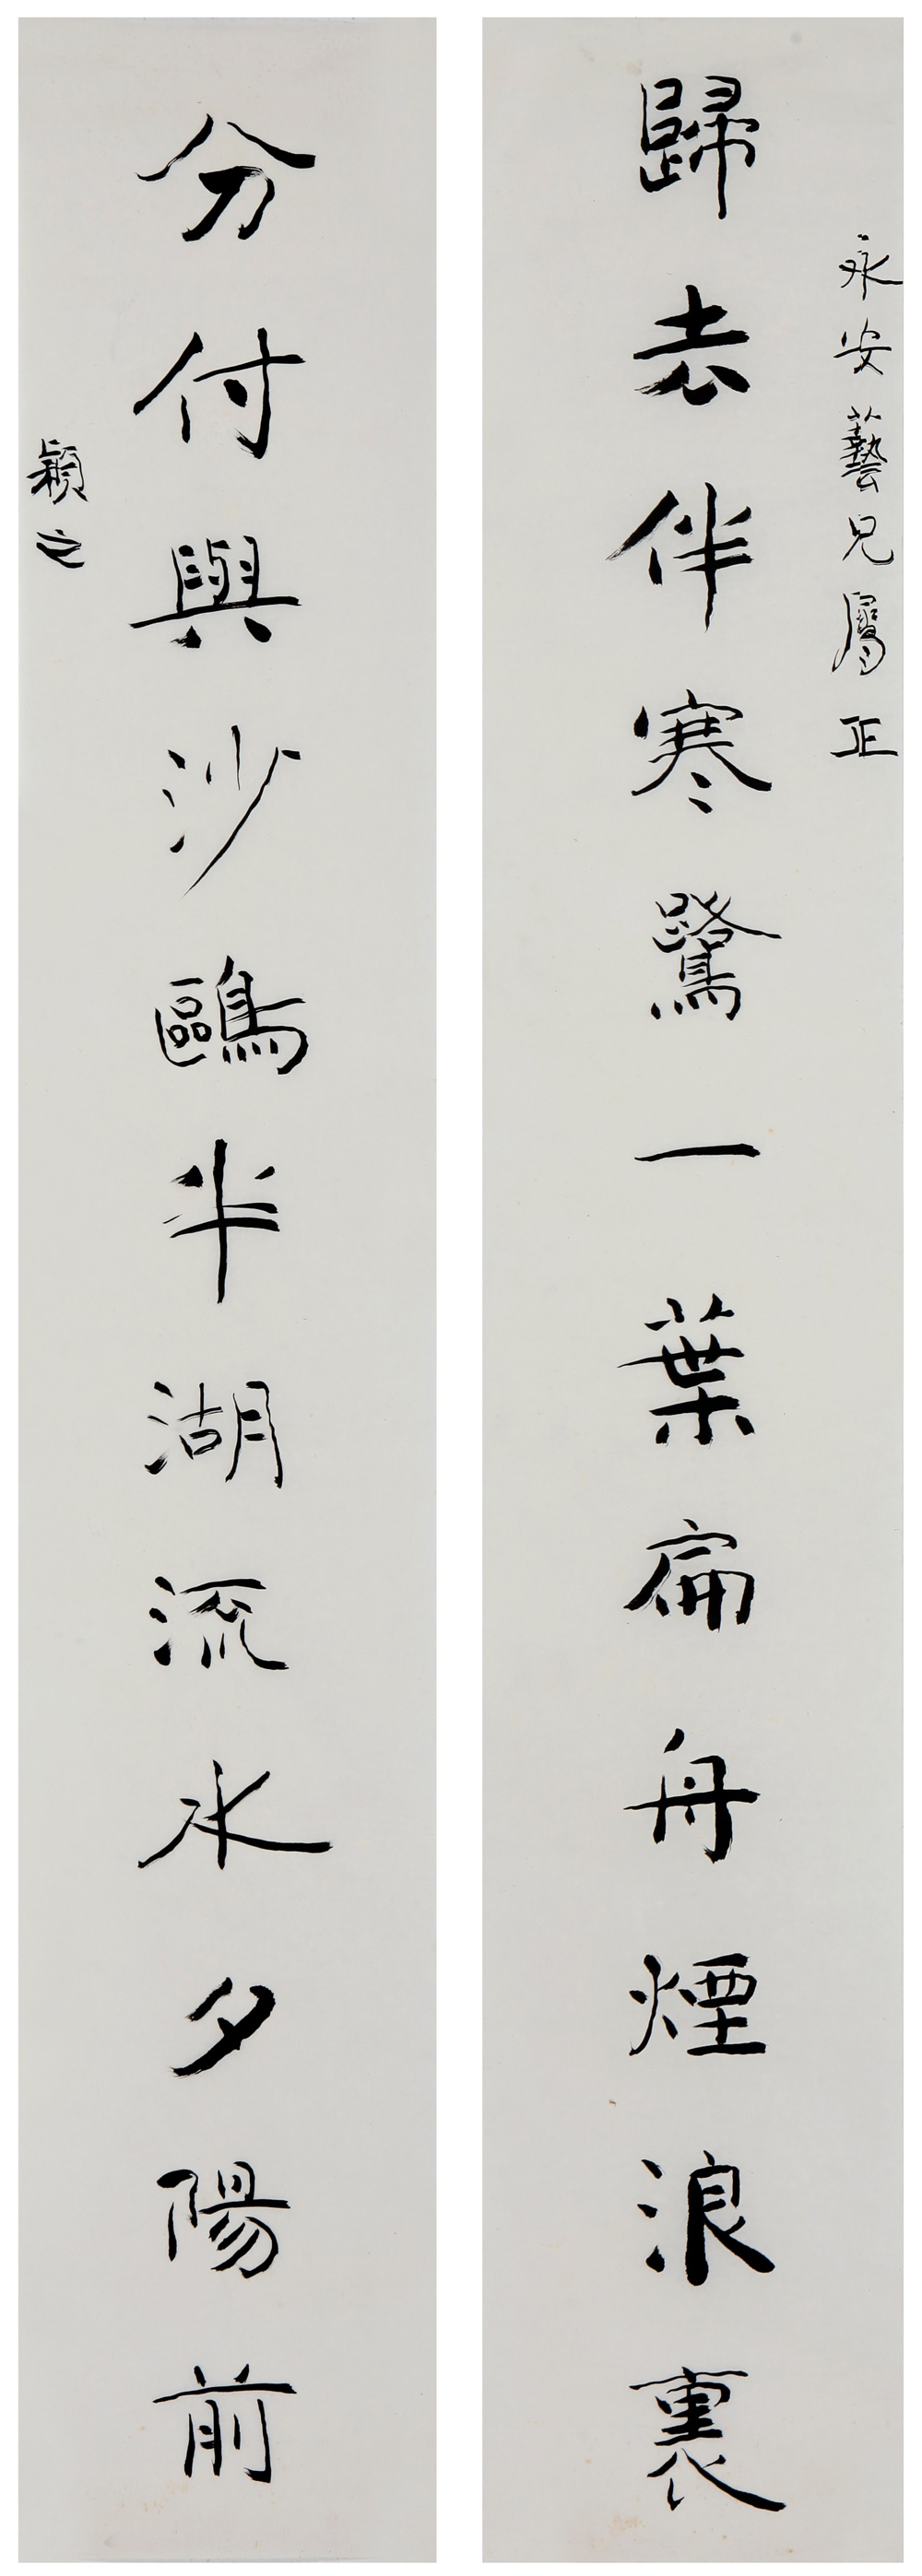 永安藝兄屬正
歸去伴寒鷺一葉扁舟煙浪裏
分付與沙鷗半湖流水夕陽前
穎之